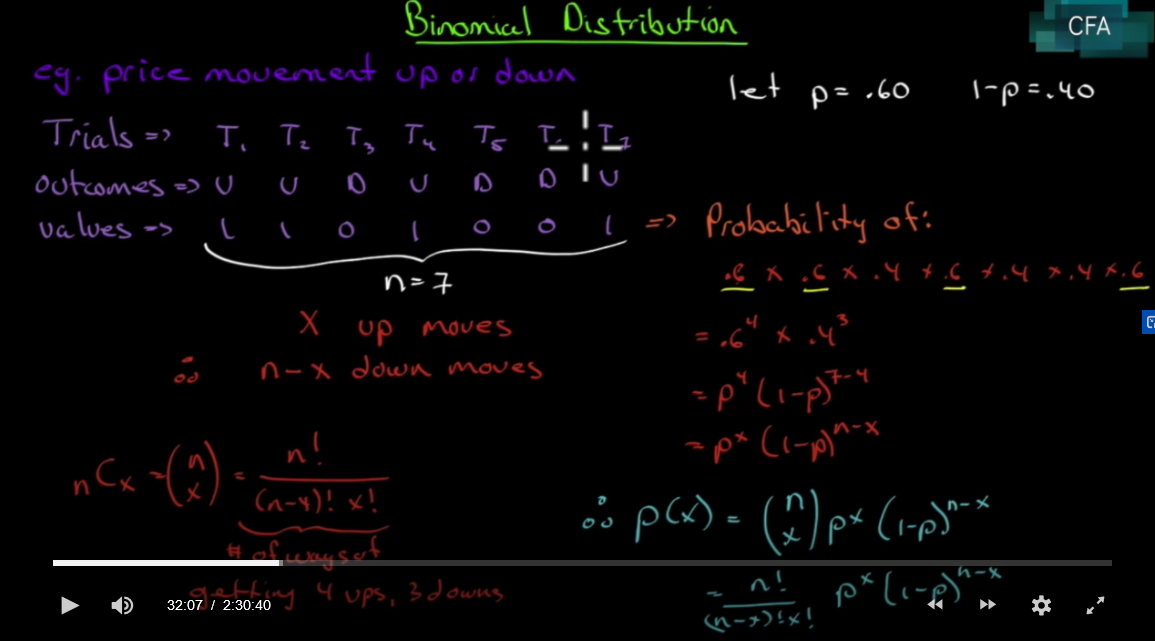 Binomial Distribution
CFA
eg. price movement up or down
let p = .60 1-p = .40
Trials => T₁ T₂ T₃ T₄ T₅ T₆ T₇
outcomes => U U D U D D U
values => 1 1 0 1 0 0 1 => Probability of:
n = 7
.6 x .6 x .4 x .6 x .4 x .4 x .6
X up moves
= .6⁴ x .4³
∴ n-x down moves
= p⁴ (1-p)⁷⁻⁴
= pˣ (1-p)ⁿ⁻ˣ
nCx = (n x) = n! / (n-x)! x!
# of ways of
getting 4 ups, 3 downs
∴ p(x) = (n x) pˣ (1-p)ⁿ⁻ˣ
= n! / (n-x)! x! pˣ (1-p)ⁿ⁻ˣ
32:07 / 2:30:40